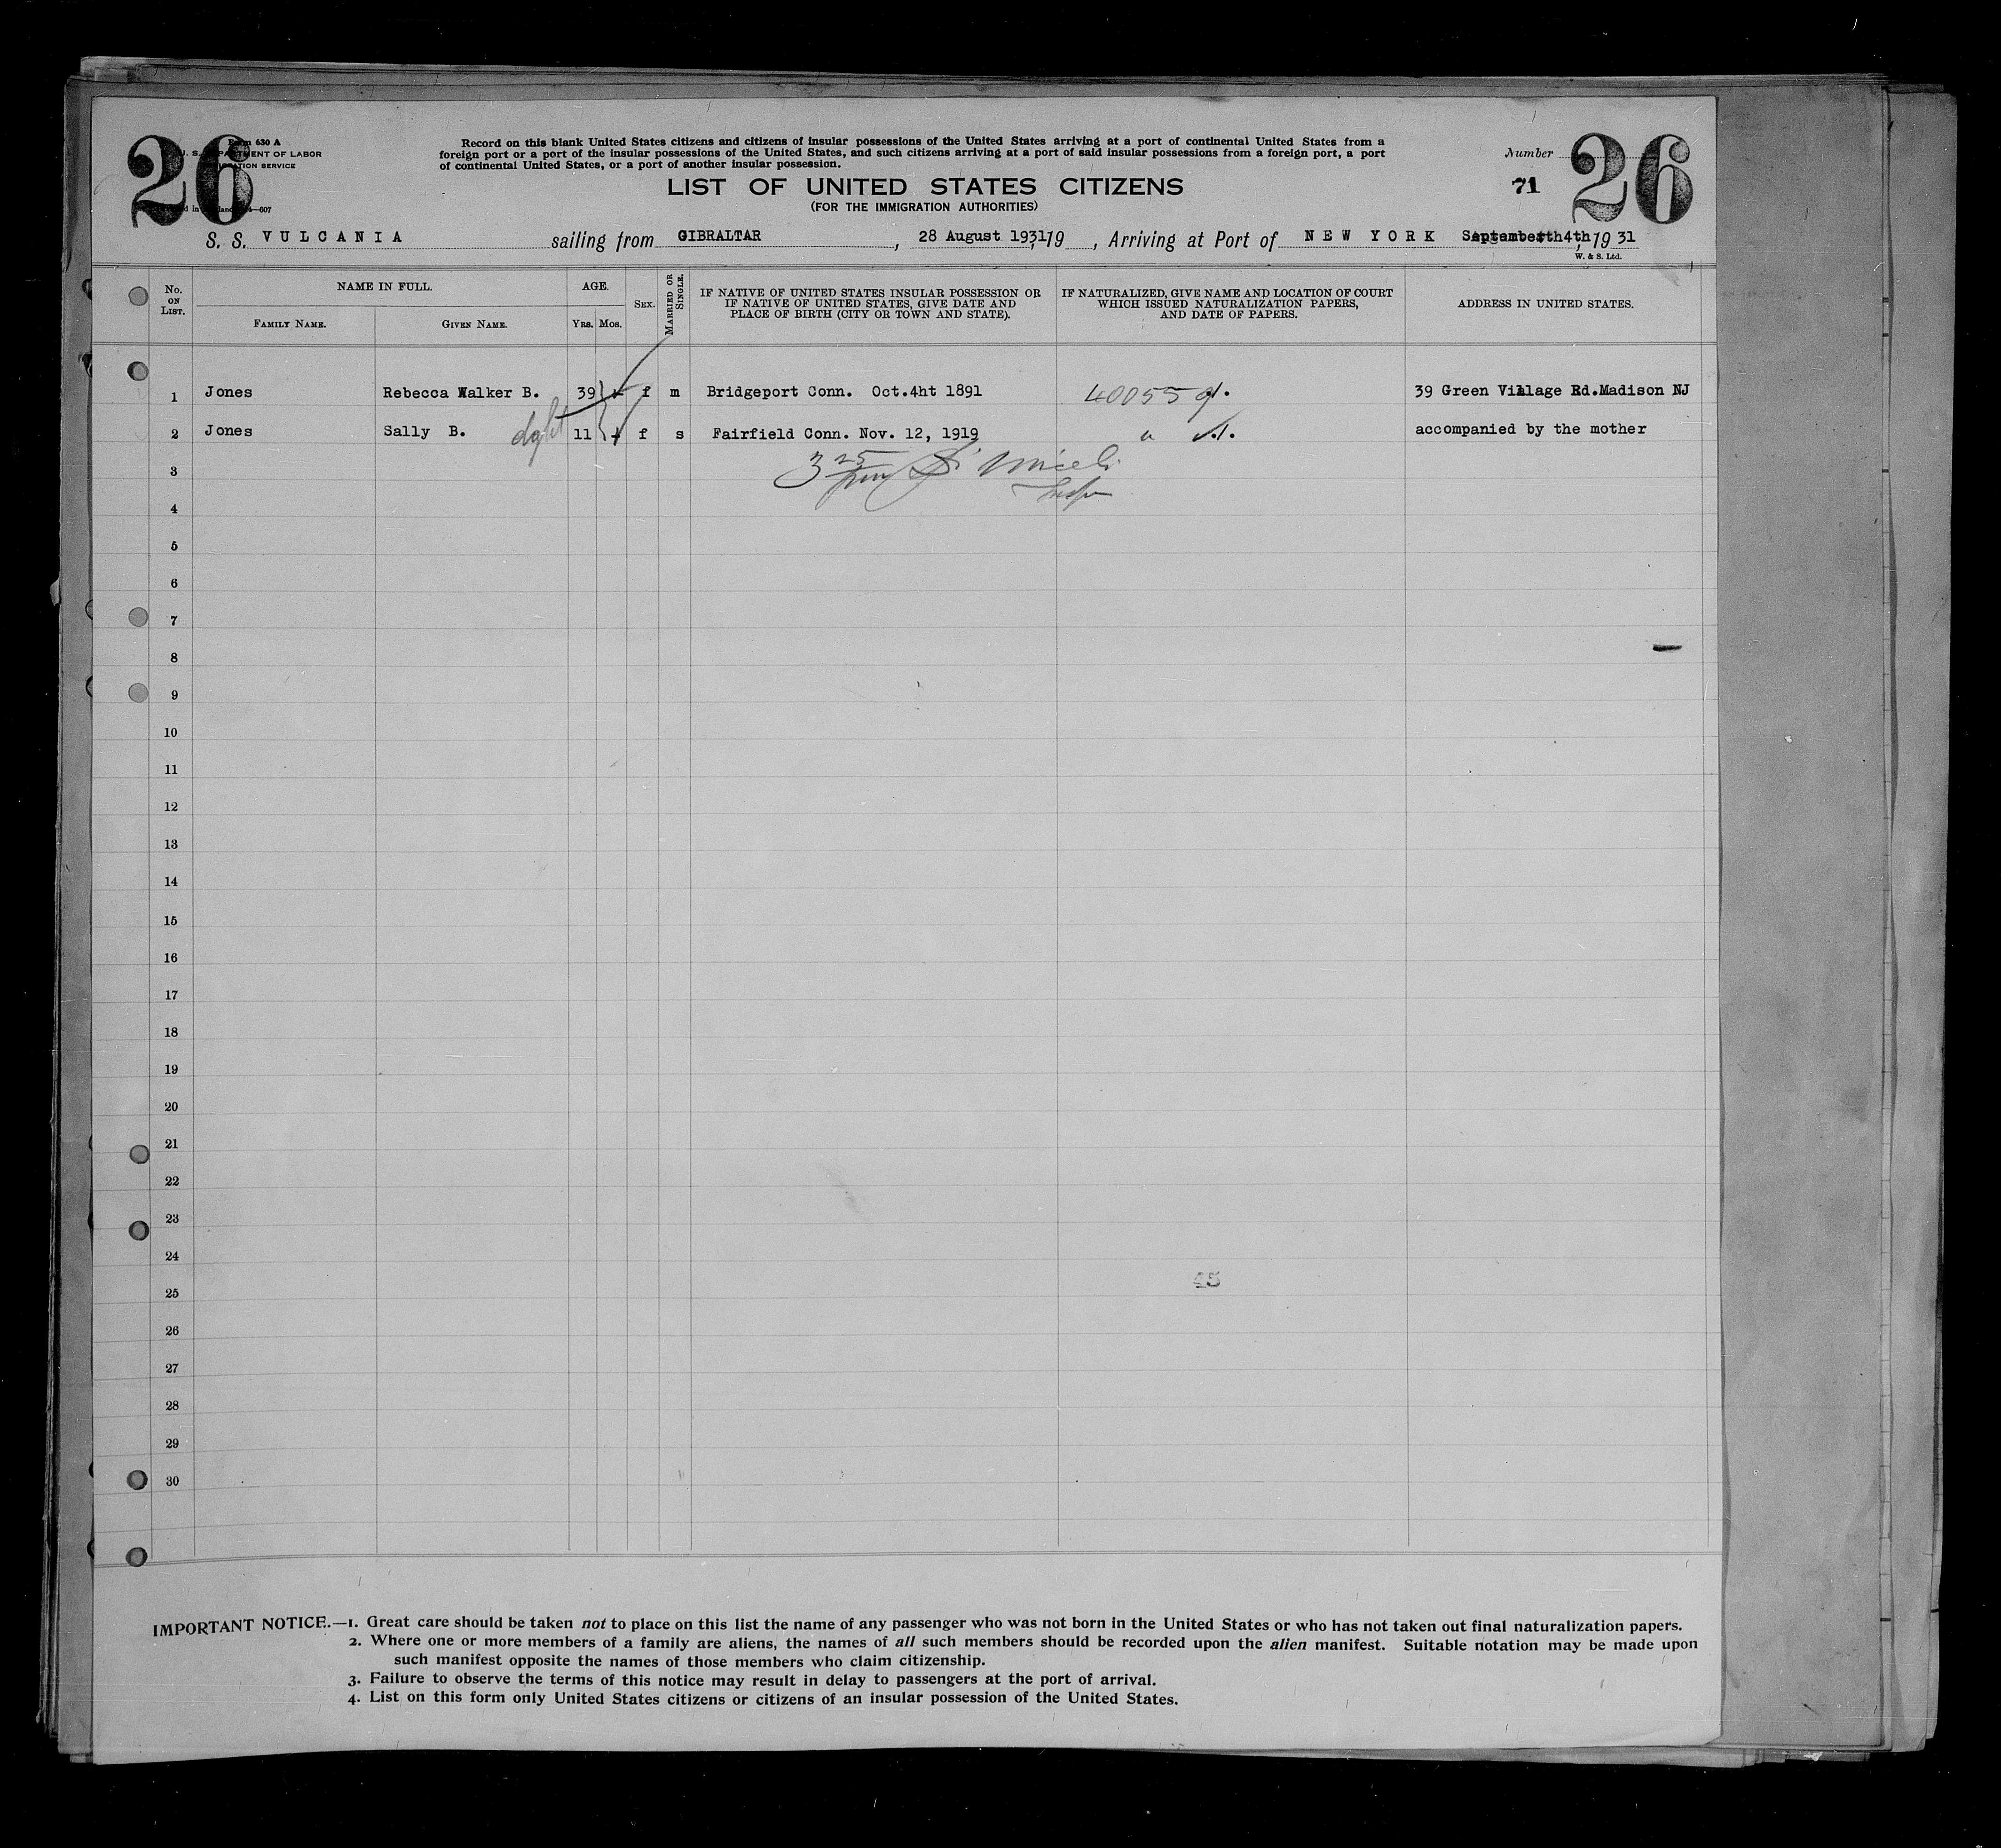 26
Form 630 A
U. S. DEPARTMENT OF LABOR
IMMIGRATION SERVICE
Record on this blank United States citizens and citizens of insular possessions of the United States arriving at a port of continental United States from a
foreign port or a port of the insular possessions of the United States, and such citizens arriving at a port of said insular possessions from a foreign port, a port
of continental United States, or a port of another insular possession.
LIST OF UNITED STATES CITIZENS
(FOR THE IMMIGRATION AUTHORITIES)
Number
71
26
S. S. VULCANIA sailing from GIBRALTAR, 28 August 1931, 19 , Arriving at Port of NEW YORK September 4th, 19 31
W. & S. Ltd.
No. ON LIST. NAME IN FULL. AGE. SEX. MARRIED OR SINGLE. IF NATIVE OF UNITED STATES INSULAR POSSESSION OR IF NATIVE OF UNITED STATES, GIVE DATE AND PLACE OF BIRTH (CITY OR TOWN AND STATE). IF NATURALIZED, GIVE NAME AND LOCATION OF COURT WHICH ISSUED NATURALIZATION PAPERS, AND DATE OF PAPERS. ADDRESS IN UNITED STATES.
FAMILY NAME. GIVEN NAME. YRS. MOS.
1 Jones Rebecca Walker B. 39 f m Bridgeport Conn. Oct.4ht 1891 40055 39 Green Village Rd.Madison NJ
2 Jones Sally B. dght 11 f s Fairfield Conn. Nov. 12, 1919 " accompanied by the mother
3 3 25
4 Insp
5
6
7
8
9
10
11
12
13
14
15
16
17
18
19
20
21
22
23
24
45
25
26
27
28
29
30
IMPORTANT NOTICE.—1. Great care should be taken not to place on this list the name of any passenger who was not born in the United States or who has not taken out final naturalization papers.
2. Where one or more members of a family are aliens, the names of all such members should be recorded upon the alien manifest. Suitable notation may be made upon
such manifest opposite the names of those members who claim citizenship.
3. Failure to observe the terms of this notice may result in delay to passengers at the port of arrival.
4. List on this form only United States citizens or citizens of an insular possession of the United States.